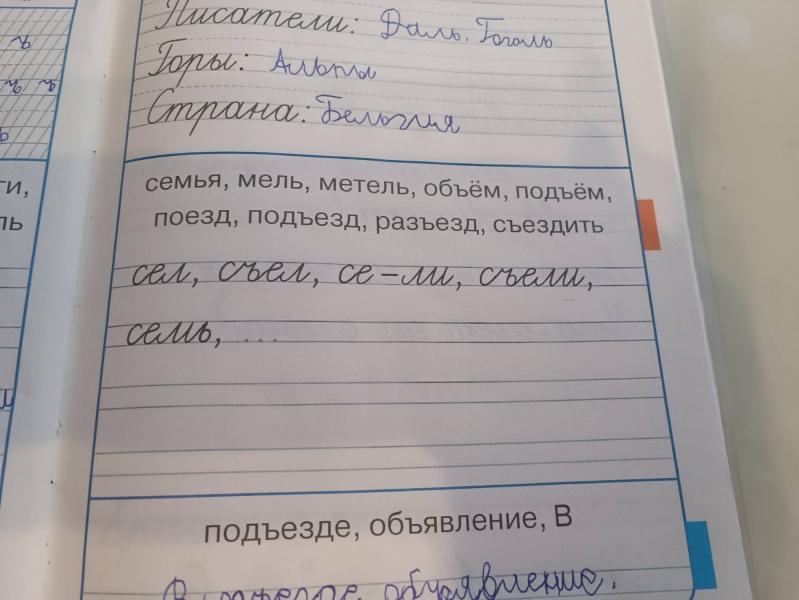 Писатели: Даль. Гоголь
Горы: Альпы
Страна: Бельгия
ги,
ль
семья, мель, метель, объём, подъём,
поезд, подъезд, разъезд, съездить
сел, съел, се-ли, съели,
семь, ...
подъезде, объявление, В
объявление.